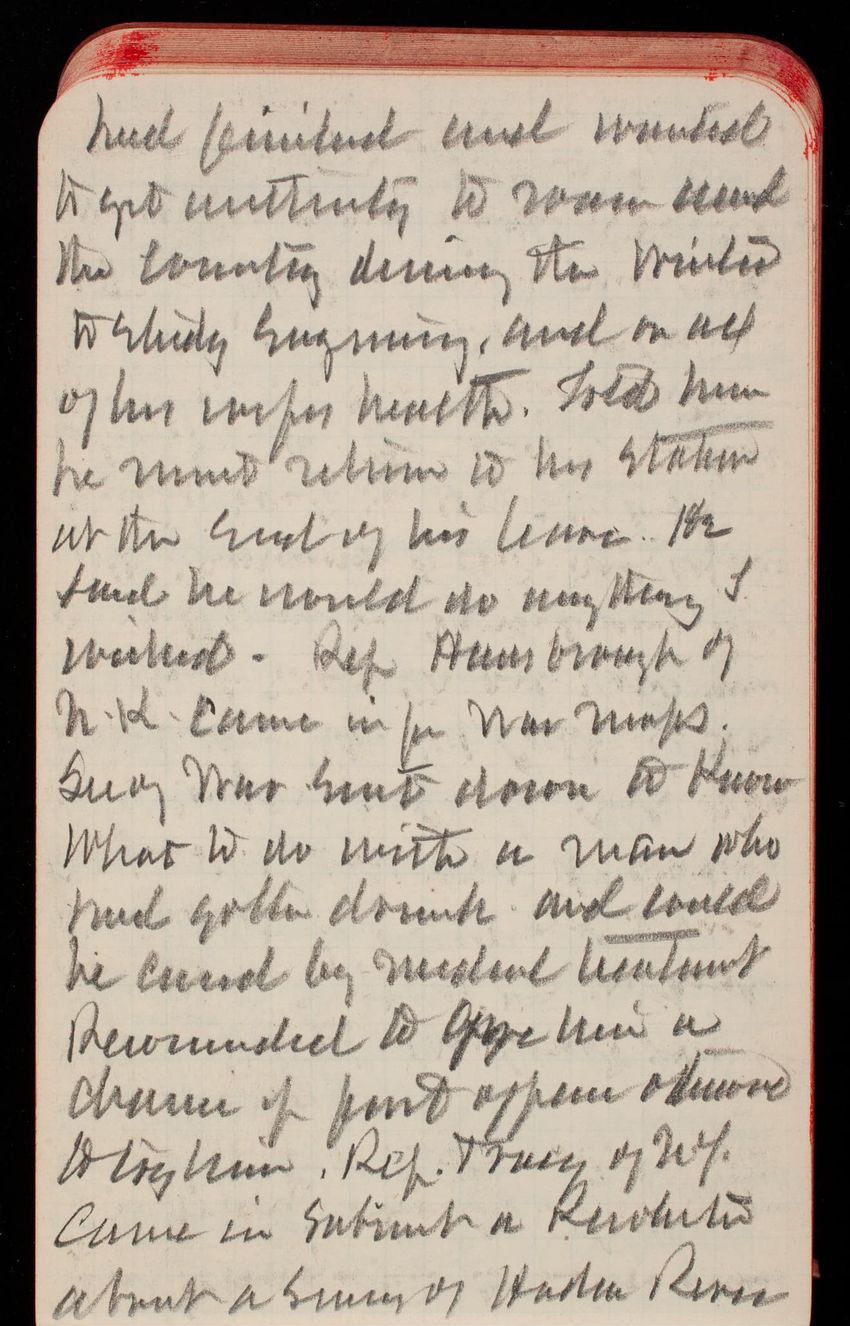 had finished and wanted
to get authority to roam around
the country during the winter
to study Engraving, and on act
of his wifes health. Told him
he must return to his station
at the end of his leave. He
said he would do anything I
wished - Rep Hansbrough of
N.K. came in for War maps.
Secy War sent down to know
what to do with a man who
had gotten drunk and could
be cured by medical treatment
Recommended to give him a
chance if first offense otherwise
to try him. Rep. Tracey of NY.
Came in Submit a Resolution
about a survey of Hudson River